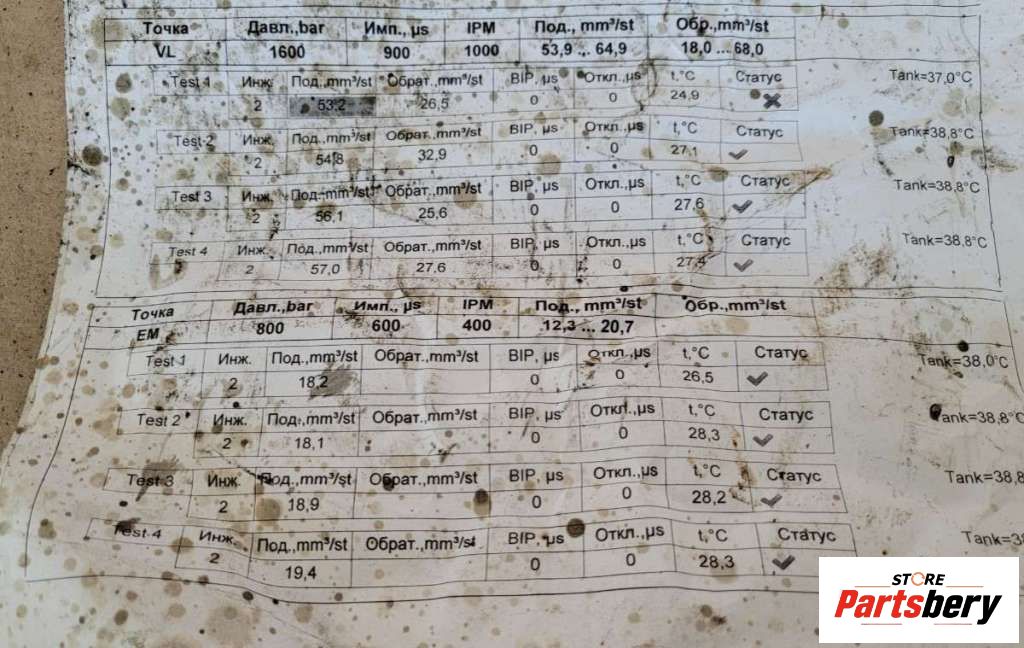 Точка Давл.,bar Имп., µs IPM Под., mm³/st Обр.,mm³/st
VL 1600 900 1000 53,9 ... 64,9 18,0 ... 68,0
Test 1 Инж. Под.,mm³/st Обрат.,mm³/st BIP, µs Откл.,µs t,°C Статус Tank=37,0°C
2 53,2 26,5 0 0 24,9
Test 2 Инж. Под.,mm³/st Обрат.,mm³/st BIP, µs Откл.,µs t,°C Статус Tank=38,8°C
2 54,8 32,9 0 0 27,1
Test 3 Инж. Под.,mm³/st Обрат.,mm³/st BIP, µs Откл.,µs t,°C Статус Tank=38,8°C
2 56,1 25,6 0 0 27,6
Test 4 Инж. Под.,mm³/st Обрат.,mm³/st BIP, µs Откл.,µs t,°C Статус Tank=38,8°C
2 57,0 27,6 0 0 27,4
Точка Давл.,bar Имп., µs IPM Под., mm³/st Обр.,mm³/st
EM 800 600 400 12,3 ... 20,7
Test 1 Инж. Под.,mm³/st Обрат.,mm³/st BIP, µs Откл.,µs t,°C Статус Tank=38,0°C
2 18,2 0 0 26,5
Test 2 Инж. Под.,mm³/st Обрат.,mm³/st BIP, µs Откл.,µs t,°C Статус Tank=38,8°C
2 18,1 0 0 28,3
Test 3 Инж. Под.,mm³/st Обрат.,mm³/st BIP, µs Откл.,µs t,°C Статус Tank=38,8
2 18,9 0 0 28,2
Test 4 Инж. Под.,mm³/st Обрат.,mm³/st BIP, µs Откл.,µs t,°C Статус
2 19,4 0 0 28,3
STORE
Partsbery